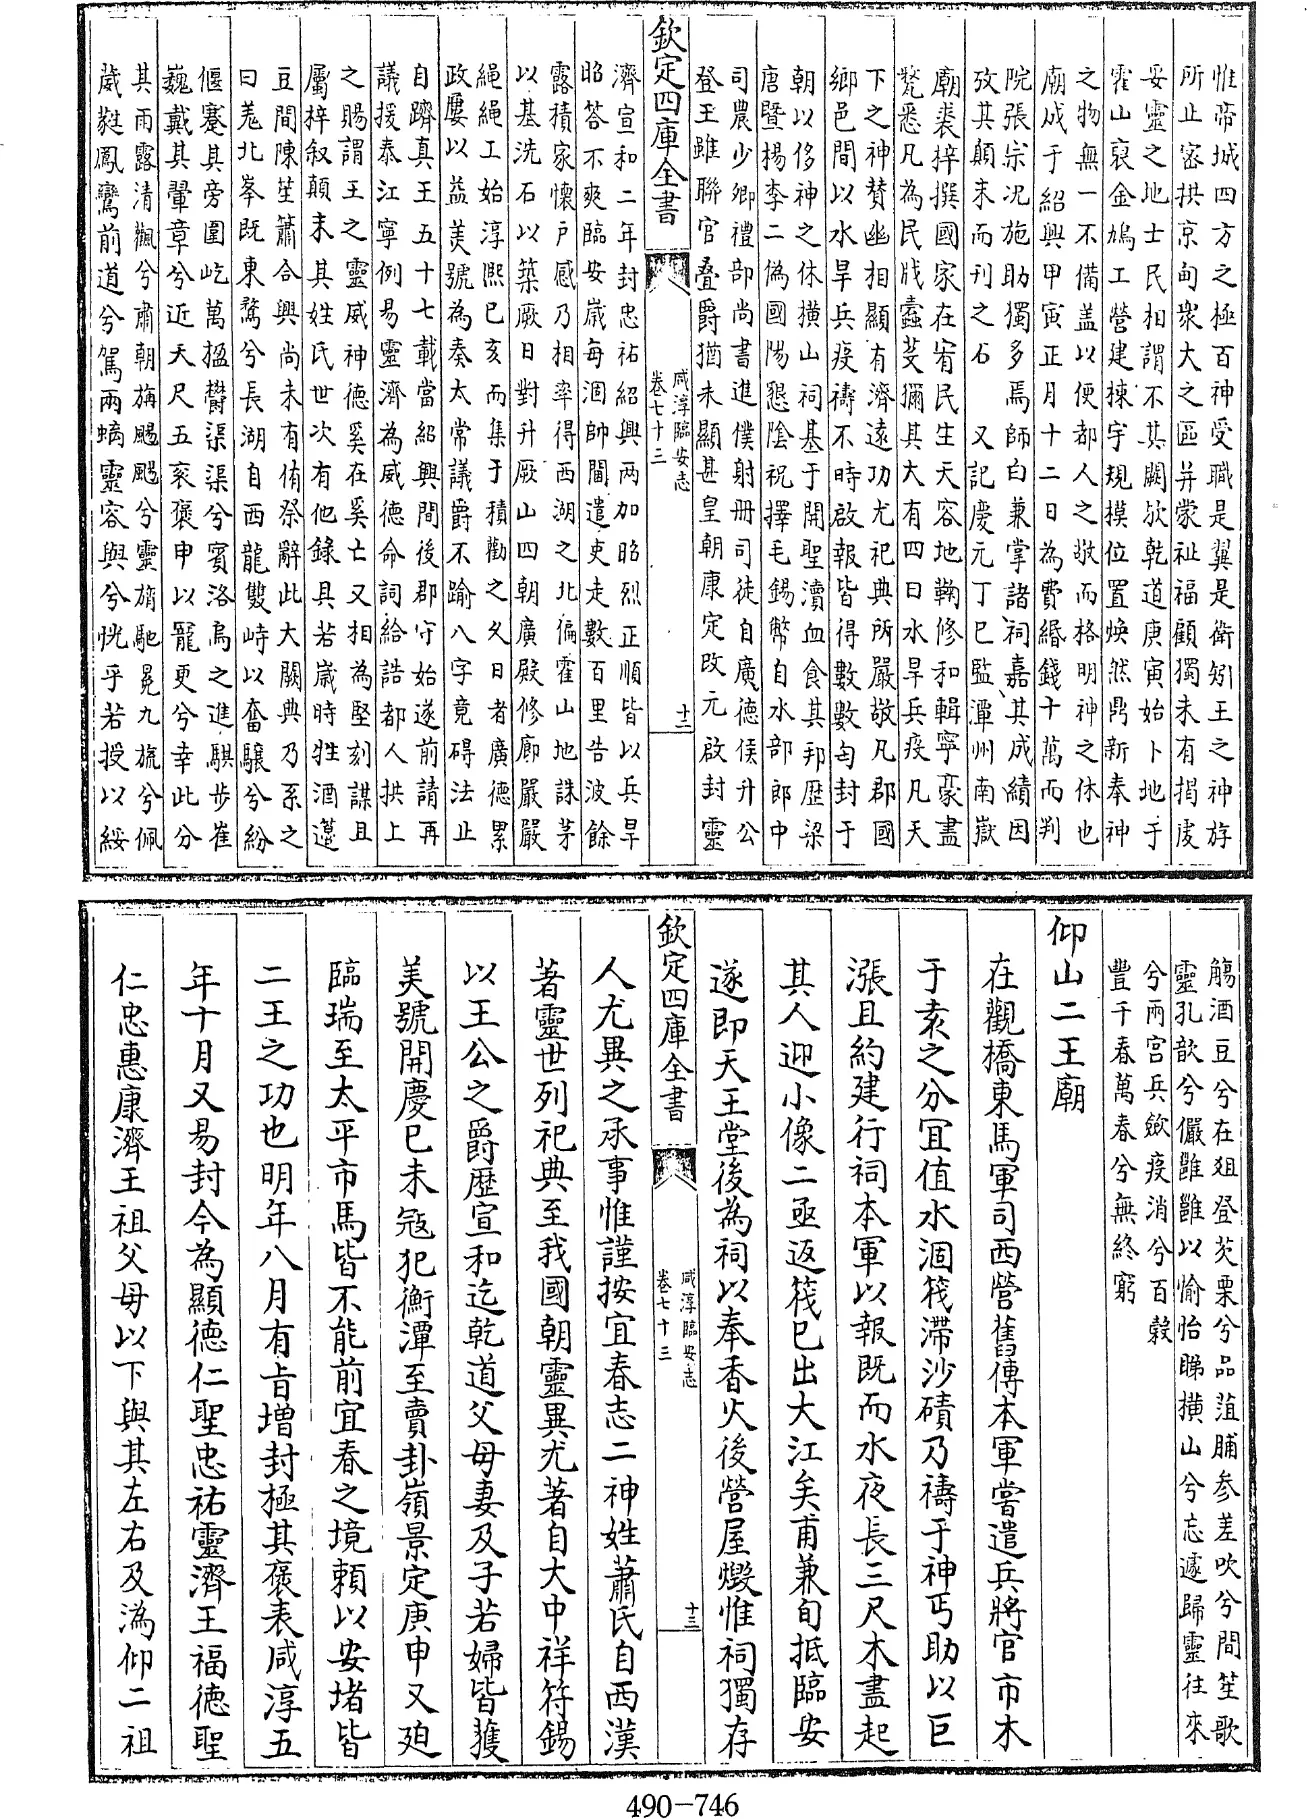 惟帝城四方之極百神受職是翼是衛矧王之神㳺
所止密拱京甸衆大之區并蒙祉福顧獨未有揭䖍
妥靈之地士民相謂不其闕歟乾道庚寅始卜地于
霍山裒金鳩工營建棟宇規摸位置煥然鼎新奉神
之物無一不備盖以便都人之敬而格明神之休也
廟成于紹興甲寅正月十二日為費緡錢十萬而判
院張宗况施助獨多焉師白兼掌諸祠嘉其成績因
攷其顛末而刊之石　又記慶元丁巳監潭州南嶽
廟裴梓撰國家在宥民生天容地鞠修和輯寧豪盡
甃悉凡為民戕蠹芟獮其大有四曰水旱兵疫凡天
下之神賛幽相顯有濟逺功尤祀典所嚴敬凡郡國
鄉邑間以水旱兵疫禱不時啟報皆得數數匄封于
朝以侈神之休横山祠基于開聖瀆血食其邦歴梁
唐暨楊李二偽國陽懇陰祝擇毛錫幣自水部郎中
司農少卿禮部尚書進僕射册司徒自廣德侯升公
登王雖聯官叠爵猶未顯甚皇朝康定改元啟封靈
欽定四庫全書
咸淳臨安志
卷七十三
十二
濟宣和二年封忠祐紹興两加昭烈正順皆以兵旱
昭答不爽臨安嵗每涸帥閫遣吏走數百里告波餘
露積家懷户感乃相率得西湖之北偏霍山地誅茅
以基洗石以築厥日對升厥山四朝廣殿修廊嚴嚴
繩繩工始淳熙己亥而集于積勸之久日者廣德累
政屢以益美號為奏太常議爵不踰八字竟碍法止
自躋真王五十七載當紹興間後郡守始遂前請再
議援泰江寧例易靈濟為威德命詞給誥都人拱上
之賜謂王之靈威神德奚在奚亡又相為堅刻謀且
屬梓叙顛末其姓氏世次有他錄具若嵗時牲酒籩
豆間陳笙簫合興尚未有侑祭辭此大闕典乃系之
曰羗北峯既東騖兮長湖自西龍雙峙以奮驤兮紛
偃蹇其旁圍屹萬楹欝渠渠兮賓洛為之進騏步崔
巍戴其翬章兮近天尺五衮褒申以寵更兮幸此分
其雨露清颿兮肅朝旃颺颺兮靈斾馳冕九旒兮佩
葳蕤鳳鸞前道兮駕兩螭靈容與兮恍乎若授以綏
觴酒豆兮在俎登芡栗兮品葅脯参差吹兮間笙歌
靈孔歆兮儼雝雝以愉怡睇横山兮忘遽歸靈往來
兮兩宫兵歛疫消兮百穀
豐千春萬春兮無終窮
仰山二王廟
在觀橋東馬軍司西營舊傳本軍嘗遣兵將官市木
于袁之分宜值水涸筏滯沙磧乃禱于神丐助以巨
漲且約建行祠本軍以報既而水夜長三尺木盡起
其人迎小像二亟返筏已出大江矣甫兼旬抵臨安
遂即天王堂後為祠以奉香火後營屋燬惟祠獨存
欽定四庫全書
咸淳臨安志
卷七十三
十三
人尤異之承事惟謹按宜春志二神姓蕭氏自西漢
著靈世列祀典至我國朝靈異尤著自大中祥符錫
以王公之爵歴宣和迄乾道父母妻及子若婦皆獲
美號開慶己未冦犯衡潭至賣卦嶺景定庚申又廹
臨瑞至太平市馬皆不能前宜春之境頼以安堵皆
二王之功也明年八月有㫖增封極其褒表咸淳五
年十月又易封今為顯德仁聖忠祐靈濟王福德聖
仁忠惠康濟王祖父母以下與其左右及溈仰二祖
490-746